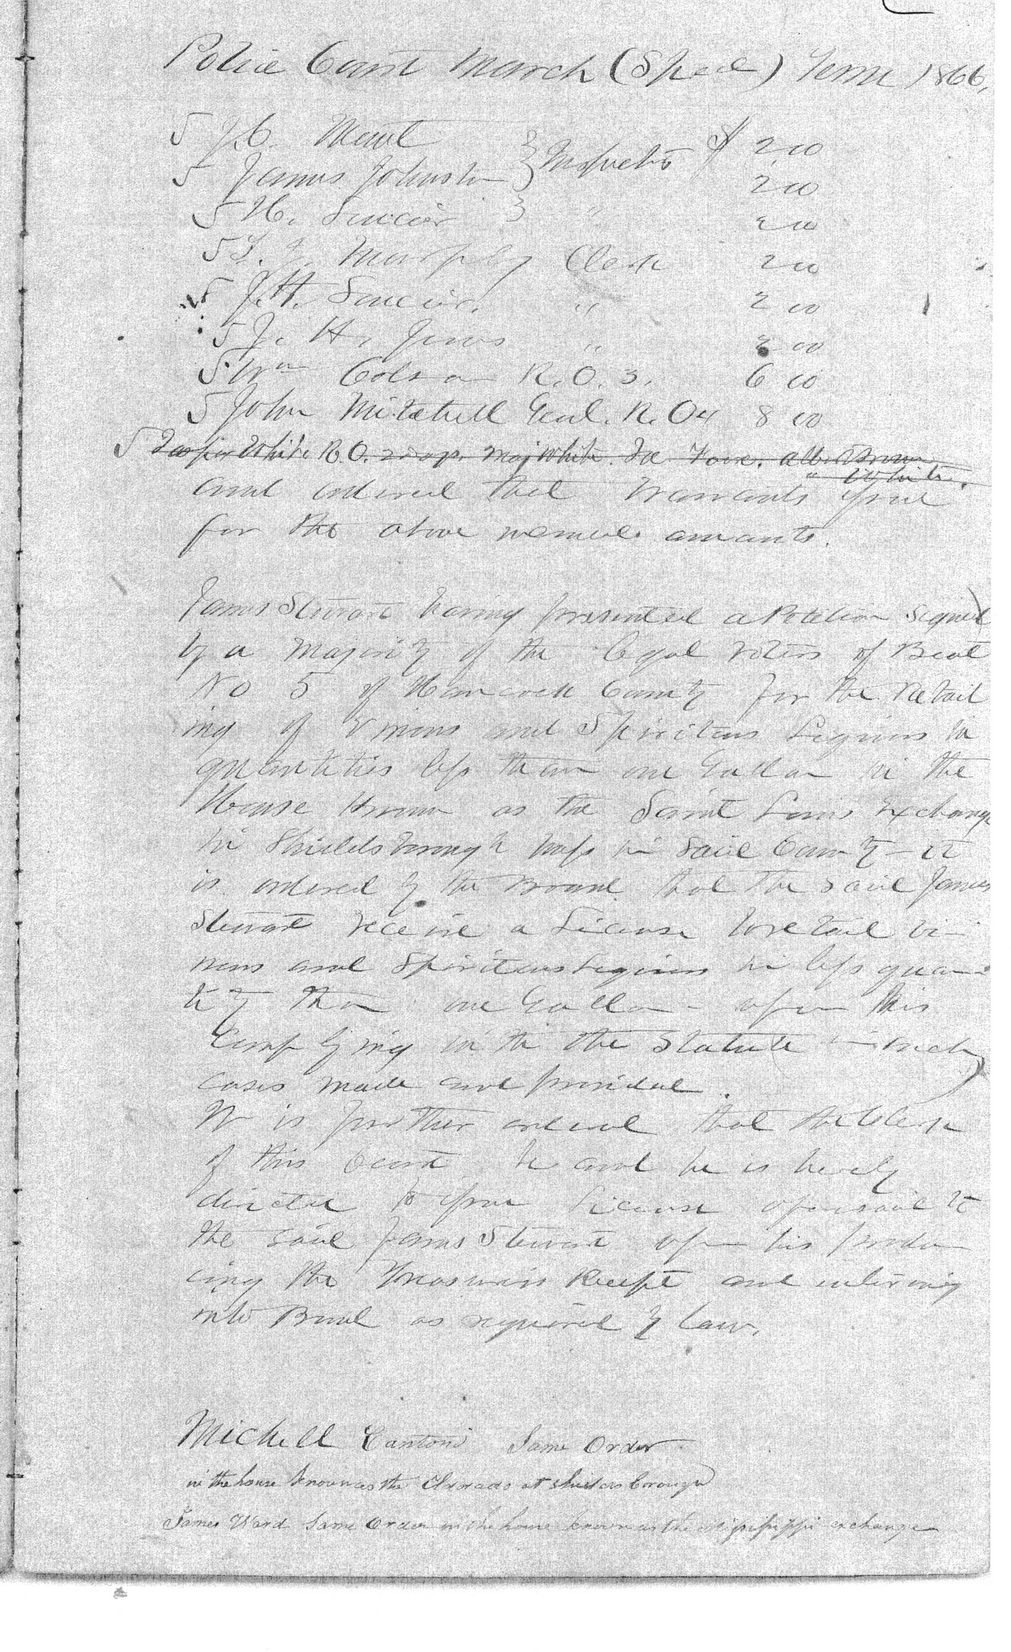 Police Court March (Specl) Term 1866,
5 J. C. Monet } Inspectors $ 2.00
5 James Johnston } 2 00
5 H. Saucier } " 2 00
5 T. J. Murphy Clerk 2 00
5 J. H. Saucier, " 2 00
5 J. H. Jones " 2 00
5 Wm Colson R. O. 3. 6 00
5 John Mitchell Genl. R. O 4 8 00
5 White R. O. 2 days. Maj White.
White.
and ordered that warrants Issue
for the above named amounts.
James Stewart having presented a Petition signed
by a Majority of the Legal voters of Beat
No 5 of Hancock County for the Retail
ing of Vinous and Spiritous Liquors in
quantities less than one Gallon in the
House Known as the Saint Louis Exchange
in Shieldsborough Miss in Said County - it
is ordered by the Board that the said James
Stewart receive a License to retail vi-
nous and Spiritous Liquors in less quan-
tity than one Gallon - upon his
Complying with the Statute in such
cases made and provided.
It is further ordered that the Clerk
of this Court be and he is hereby
directed to Issue License aforesaid to
the said James Stewart upon his produ
cing the Treasurers Receipt and entering
into Bond as required by Law.
Michell Cantoni Same Order
in the house known as the at Shieldsborough
James Ward Same Order in the house known as the Mississippi exchange